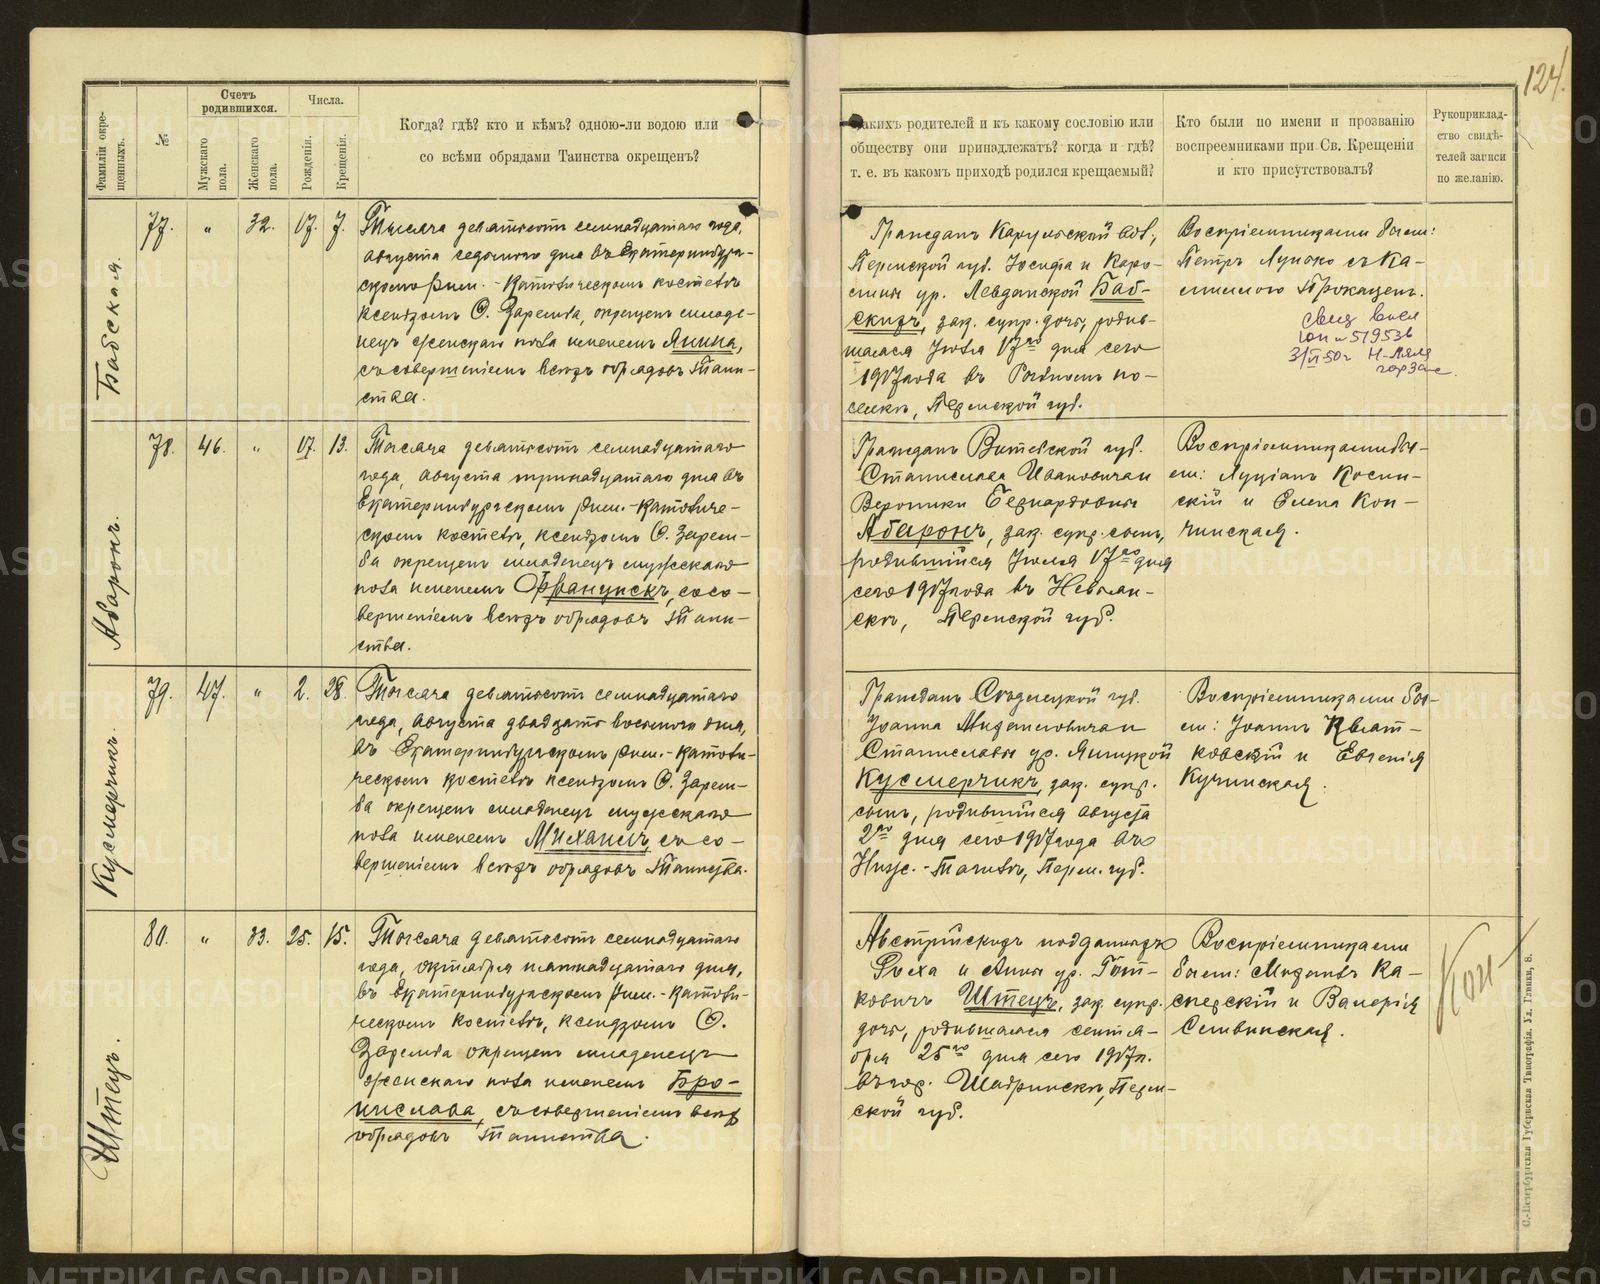 124.
Фамиліи окре-
щенныхъ.
№
Счетъ
родившихся.
Мужскаго
пола.
Женскаго
пола.
Числа.
Рожденія.
Крещенія.
Когда? гдѣ? кто и кѣмъ? одною-ли водою или
со всѣми обрядами Таинства окрещенъ?
Какихъ родителей и къ какому сословію или
обществу они принадлежатъ? когда и гдѣ?
т. е. въ какомъ приходѣ родился крещаемый?
Кто были по имени и прозванію
воспреемниками при Св. Крещеніи
и кто присутствовалъ?
Рукоприклад-
ство свидѣ-
телей записи
по желанію.
Бабская.
77. " 32. 17. 7.
Тысяча девятьсотъ семнадцатаго года,
августа седьмого дня въ Екатеринбург-
скомъ Рим.-Католическомъ костелѣ
Ксендзомъ О. Заремба, окрещенъ младе-
нецъ женскаго пола именемъ Янина,
съ совершеніемъ всѣхъ обрядовъ Таин-
ства.
Гражданъ
Пермской губ. Іосифа и Каро-
лины ур. Левданской Баб-
скихъ, зак. супр. дочь, родив-
шаяся Іюля 17го дня сего
1917 года въ по-
селкѣ, Пермской губ.
Воспріемниками были:
Петръ Лупако съ Ка-
миллою
3/VI 50г Н-Ляля
Абаронъ.
78. 46. " 17. 13.
Тысяча девятьсотъ семнадцатаго
года, августа тринадцатаго дня въ
Екатеринбургскомъ Рим.-Католиче-
скомъ костелѣ, ксендзомъ О. Зарем-
ба окрещенъ младенецъ мужскаго
пола именемъ Францискъ, со со-
вершеніемъ всѣхъ обрядовъ Таин-
ства.
Гражданъ Витебской губ.
Станислава Ивановича и
Вероники Бернардовны
Абаронъ, зак. супр. сынъ,
родившійся Іюля 17го дня
сего 1917 года въ Невьян-
скѣ, Пермской губ.
Воспріемниками бы-
ли: Луціанъ Косин-
скій и Елена Кон-
чинская.
Кусмерчикъ.
79. 47. " 2. 28.
Тысяча девятьсотъ семнадцатаго
года, августа двадцать восьмого дня,
въ Екатеринбургскомъ Рим.-Католи-
ческомъ костелѣ ксендзомъ О. Зарем-
ба окрещенъ младенецъ мужскаго
пола именемъ Михаилъ, съ со-
вершеніемъ всѣхъ обрядовъ Таинства.
Гражданъ Сѣдлецкой губ.
Іоанна Михайловича и
Станиславы ур. Яницкой
Кусмерчикъ, зак. супр.
сынъ, родившійся августа
2го дня сего 1917 года въ
Нижс.-Тагилѣ, Перм. губ.
Воспріемниками бы-
ли: Іоаннъ Квят-
ковскій и Евгенія
Кучинская.
Штецъ.
80. " 33. 25. 15.
Тысяча девятьсотъ семнадцатаго
года, октября пятнадцатаго дня,
въ Екатеринбургскомъ Рим.-Католи-
ческомъ костелѣ, ксендзомъ О.
Заремба окрещенъ младенецъ
женскаго пола именемъ Бро-
нислава, съ совершеніемъ всѣхъ
обрядовъ Таинства.
Австрійскихъ подданныхъ
Роха и Анны ур. Гот-
ковичъ Штецъ, зак. супр.
дочь, родившаяся сентя-
бря 25го дня сего 1917 г.
въ гор. Шадринскѣ, Перм-
ской губ.
Воспріемниками
были: Михаилъ Ка-
сперскій и Валерія
Сливинская.
Кон-
С.-Петербургская Губернская Типографія. Ул. Глинки, 8.
METRIKI.GASO-URAL.RU